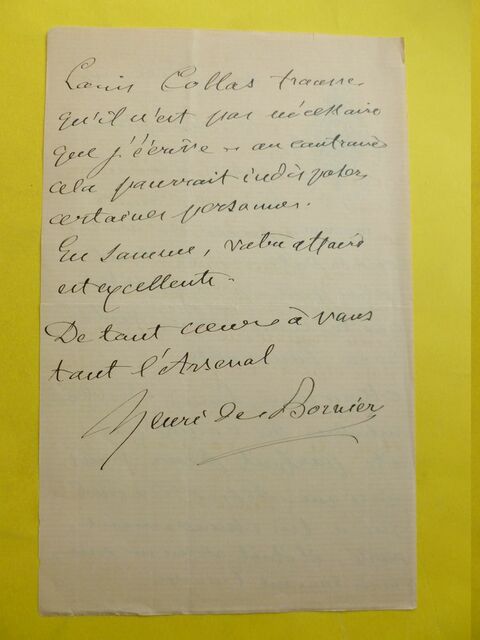 Louis Collas trouve
qu'il n'est pas nécessaire
que j'écrive - au contraire
cela pourrait indisposer
certaines personnes.
En somme, votre affaire
est excellente.
De tout coeur à vous
tout l'Arsenal
Henri de Bornier